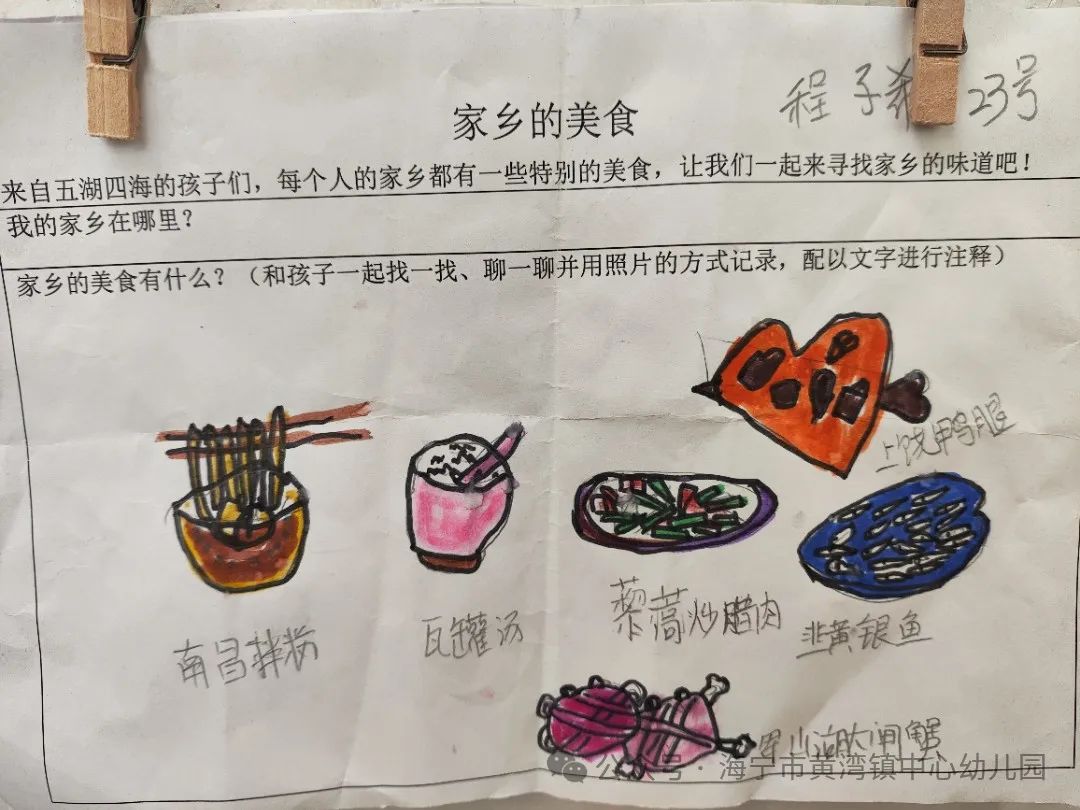 家乡的美食
程子 23号
来自五湖四海的孩子们，每个人的家乡都有一些特别的美食，让我们一起来寻找家乡的味道吧！
我的家乡在哪里？
家乡的美食有什么？（和孩子一起找一找、聊一聊并用照片的方式记录，配以文字进行注释）
上饶鸭腿
南昌拌粉
瓦罐汤
藜蒿炒腊肉
韭黄银鱼
军山湖大闸蟹
公众号·海宁市黄湾镇中心幼儿园